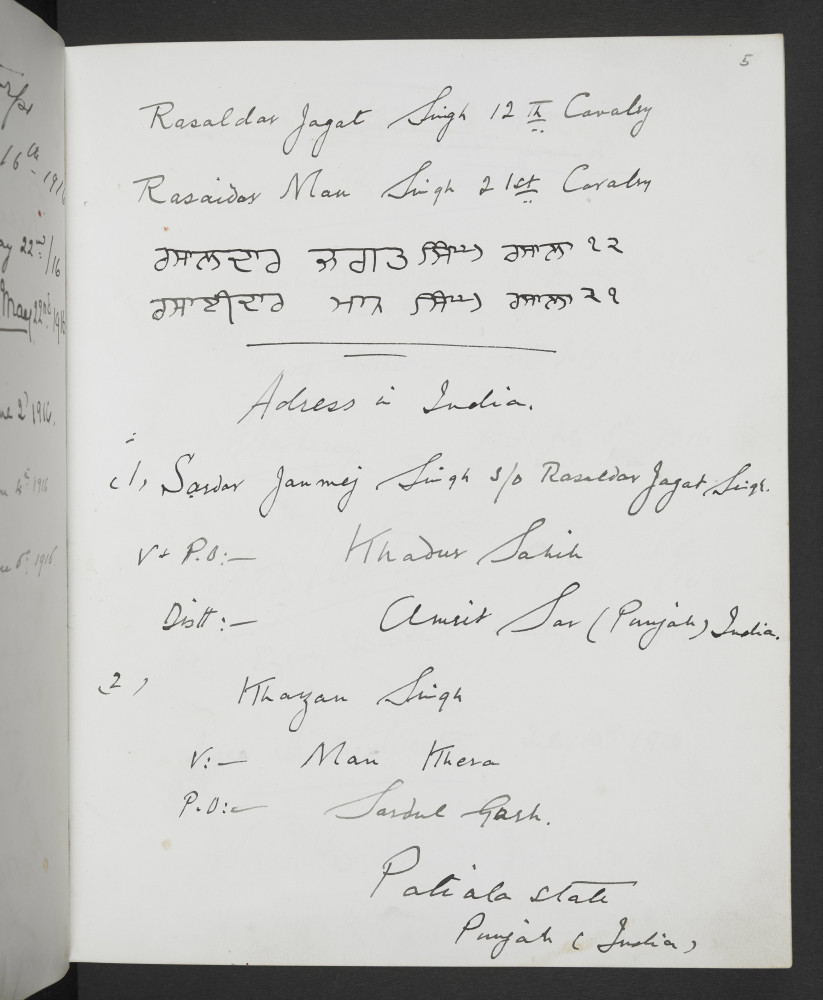 5
Rasaldar Jagat Singh 12th Cavalry
Rasaidar Man Singh 21st Cavalry
ਰਸਾਲਦਾਰ ਜਗਤ ਸਿੰਘ ਰਸਾਲਾ ੧੨
ਰਸਾਈਦਾਰ ਮਾਨ ਸਿੰਘ ਰਸਾਲਾ ੨੧
Adress in India.
(1) Sardar Janmej Singh s/o Rasaldar Jagat Singh.
V & P.O:— Khadur Sahib
Distt:— Amrit Sar (Punjab) India.
(2) Khazan Singh
V:— Man Khera
P.O:— Sardul Garh.
Patiala state
Punjab (India)
16th 1916
22nd/16
May 22nd 1916
2d 1916.
1916
1916